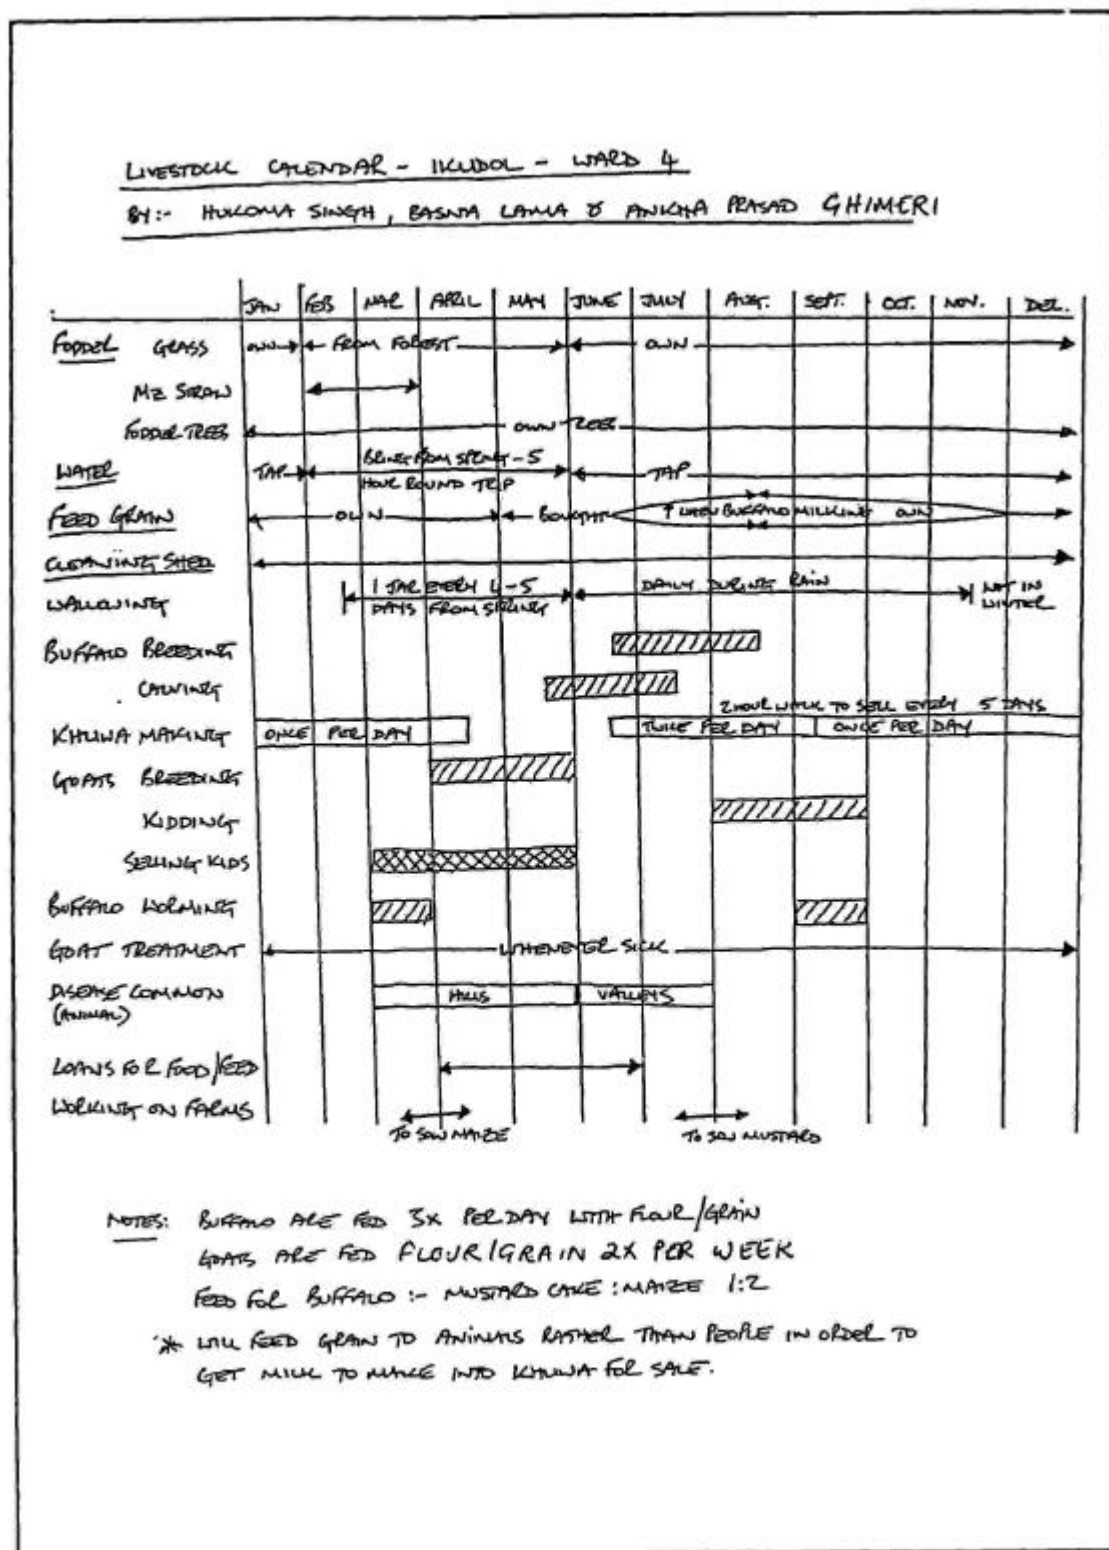 LIVESTOCK CALENDAR - IKUDOL - WARD 4
BY:- HUKOMA SINGH, BASNTA LAMA & ANKHA PRASAD GHIMERI
JAN FEB MAR APRIL MAY JUNE JULY AUG. SEPT. OCT. NOV. DEC.
FODDER GRASS OWN FROM FOREST OWN
MZ STRAW
FODDER TREES OWN TREES
WATER TAP BRING FROM SPRING - 5 HOUR ROUND TRIP TAP
FEED GRAIN OWN BOUGHT ↑ WHEN BUFFALO MILKING OWN
CLEANING SHED
WALLOWING 1 JAR EVERY 4-5 DAYS FROM SPRING DAILY DURING RAIN NOT IN WINTER
BUFFALO BREEDING
CALVING
2 HOUR WALK TO SELL EVERY 5 DAYS
KHUWA MAKING ONCE PER DAY TWICE PER DAY ONCE PER DAY
GOATS BREEDING
KIDDING
SELLING KIDS
BUFFALO WORMING
GOAT TREATMENT WHENEVER SICK
DISEASE COMMON HILLS VALLEYS
(ANIMAL)
LOANS FOR FOOD/FEED
WORKING ON FARMS
TO SOW MAIZE TO SOW MUSTARD
NOTES: BUFFALO ARE FED 3X PER DAY WITH FLOUR/GRAIN
GOATS ARE FED FLOUR/GRAIN 2X PER WEEK
FEED FOR BUFFALO :- MUSTARD CAKE : MAIZE 1:2
* WILL FEED GRAIN TO ANIMALS RATHER THAN PEOPLE IN ORDER TO
GET MILK TO MAKE INTO KHUWA FOR SALE.